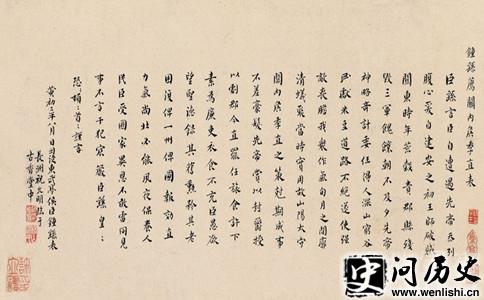 鍾繇薦關内侯季直表
臣繇言臣自遭遇先帝忝列
腹心爰自建安之初王師破賊
關東時年荒穀貴郡縣殘
毀三軍餽饟朝不及夕先帝
神略奇計委任得人深山窮谷
民獻米豆道路不絕遂使強
敵喪膽我衆作氣旬月之間廓
清蟻聚當時實用故山陽太守
關内侯季直之策尅期成事
不差豪髮先帝賞以封爵授
以劇郡今直罷任旅食許下
素爲廉吏衣食不充臣愚欲
望聖德錄其舊勳矜其老
困復俾一州俾圖報效直
力氣尚壯必能夙夜保養人
民臣受國家異恩不敢雷同見
事不言干犯宸嚴臣繇皇〻
恐〻頓〻首〻謹言
黃初二年八月日司徒東武亭侯臣鍾繇表
長洲祝允明臨于
古香堂中
史问历史
www.wenlishi.cn